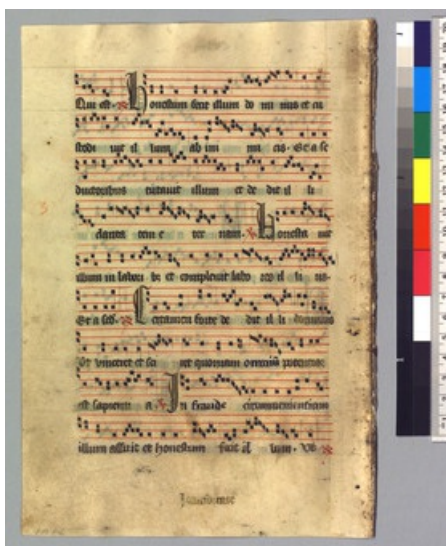 Qui est. Honestum fecit illum do mi nus et cu
stodi uit il lum ab ini mi cis. Et a se
ductoribus tutauit illum et de dit il li
claritatem e ter nam. Honesta uit
illum in labori bus et compleuit labo res il li us
Et a sed. Certamen forte de dit il li
ut vinceret et sci ret quoniam omnium potentior
est sapienti a. In fraude circumuenientium
illum affuit et honestum fecit il lum.